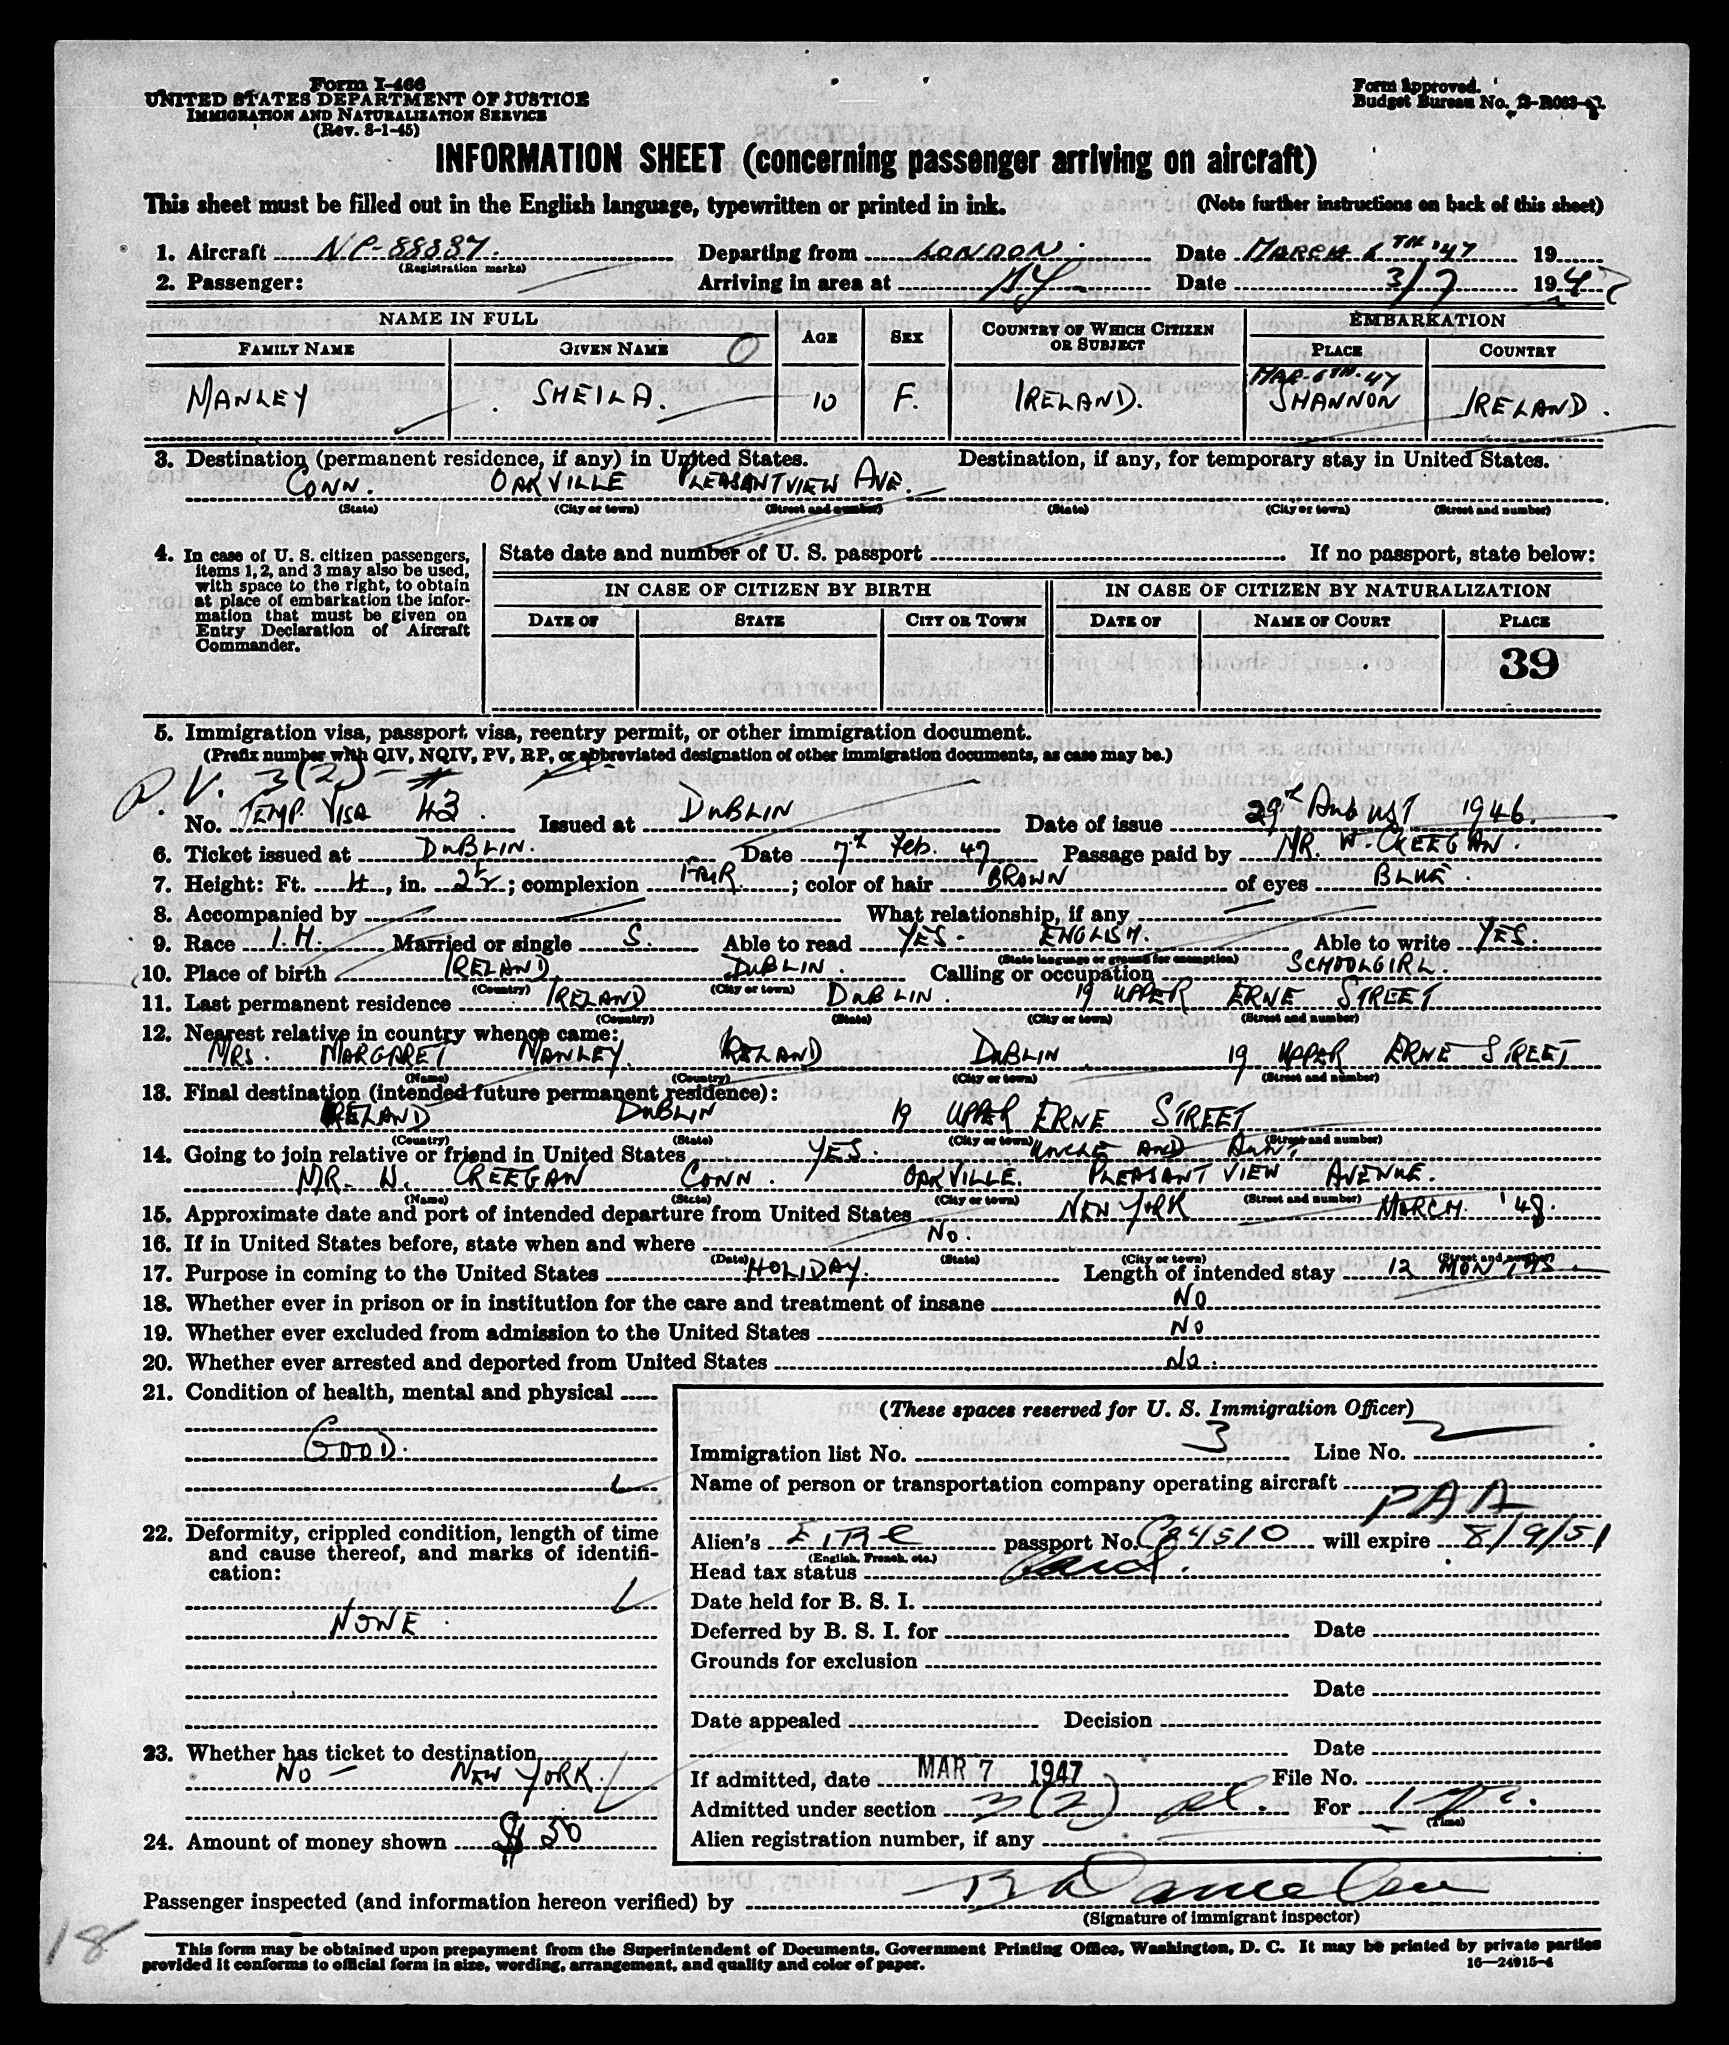 Form I-466
UNITED STATES DEPARTMENT OF JUSTICE
IMMIGRATION AND NATURALIZATION SERVICE
(Rev. 8-1-45)
Form Approved.
Budget Bureau No.
INFORMATION SHEET (concerning passenger arriving on aircraft)
This sheet must be filled out in the English language, typewritten or printed in ink. (Note further instructions on back of this sheet)
1. Aircraft NC-88887. Departing from LONDON. Date MARCH 6TH '47 19
(Registration marks)
2. Passenger: Arriving in area at NY Date 3/7 1947
NAME IN FULL AGE SEX COUNTRY OF WHICH CITIZEN OR SUBJECT EMBARKATION
FAMILY NAME GIVEN NAME PLACE COUNTRY
MAR. 6TH. 47
MANLEY SHEILA. 10 F. IRELAND. SHANNON IRELAND.
3. Destination (permanent residence, if any) in United States. Destination, if any, for temporary stay in United States.
CONN. OAKVILLE PLEASANTVIEW AVE.
(State) (City or town) (Street and number) (State) (City or town) (Street and number)
4. In case of U. S. citizen passengers, items 1, 2, and 3 may also be used, with space to the right, to obtain at place of embarkation the information that must be given on Entry Declaration of Aircraft Commander.
State date and number of U. S. passport If no passport, state below:
IN CASE OF CITIZEN BY BIRTH IN CASE OF CITIZEN BY NATURALIZATION
DATE OF STATE CITY OR TOWN DATE OF NAME OF COURT PLACE
39
5. Immigration visa, passport visa, reentry permit, or other immigration document.
(Prefix number with QIV, NQIV, PV, RP, or abbreviated designation of other immigration documents, as case may be.)
P.V. 3(2) - #
No. TEMP. VISA 43. Issued at DUBLIN Date of issue 29th AUGUST 1946.
6. Ticket issued at DUBLIN. Date 7th Feb. 47 Passage paid by MR. W. CREEGAN.
7. Height: Ft. 4, in. 2½; complexion FAIR.; color of hair BROWN of eyes BLUE.
8. Accompanied by What relationship, if any
9. Race I.H. Married or single S. Able to read YES - ENGLISH. Able to write YES.
(State language or ground for exemption)
10. Place of birth IRELAND DUBLIN. Calling or occupation SCHOOLGIRL.
(Country) (City or town)
11. Last permanent residence IRELAND DUBLIN. 19 UPPER ERNE STREET
(Country) (State) (City or town) (Street and number)
12. Nearest relative in country whence came:
MRS. MARGARET MANLEY. IRELAND DUBLIN. 19 UPPER ERNE STREET
(Name) (Country) (City or town) (Street and number)
13. Final destination (intended future permanent residence):
IRELAND DUBLIN 19 UPPER ERNE STREET
(Country) (State) (City or town) (Street and number)
14. Going to join relative or friend in United States YES. UNCLE AND AUNT
MR. W. CREEGAN CONN. OAKVILLE. PLEASANT VIEW AVENUE.
(Name) (State) (City or town) (Street and number)
15. Approximate date and port of intended departure from United States NEW YORK MARCH '48.
16. If in United States before, state when and where NO.
(Date) (State) (City or town) (Street and number)
17. Purpose in coming to the United States HOLIDAY. Length of intended stay 12 MONTHS.
18. Whether ever in prison or in institution for the care and treatment of insane NO
19. Whether ever excluded from admission to the United States NO
20. Whether ever arrested and deported from United States NO.
21. Condition of health, mental and physical
GOOD.
22. Deformity, crippled condition, length of time and cause thereof, and marks of identification:
NONE.
23. Whether has ticket to destination
NO - NEW YORK.
24. Amount of money shown $ 50
(These spaces reserved for U. S. Immigration Officer)
Immigration list No. 3 Line No. 2
Name of person or transportation company operating aircraft
PAA
Alien's EIRE passport No. C84510 will expire 8/9/51
(English, French, etc.)
Head tax status
Date held for B. S. I.
Deferred by B. S. I. for Date
Grounds for exclusion
Date
Date appealed Decision
Date
If admitted, date MAR 7 1947 File No.
Admitted under section 3(2) For 1 yr.
(Time)
Alien registration number, if any
Passenger inspected (and information hereon verified) by
(Signature of immigrant inspector)
18
This form may be obtained upon prepayment from the Superintendent of Documents, Government Printing Office, Washington, D. C. It may be printed by private parties
provided it conforms to official form in size, wording, arrangement, and quality and color of paper. 16—24915-4